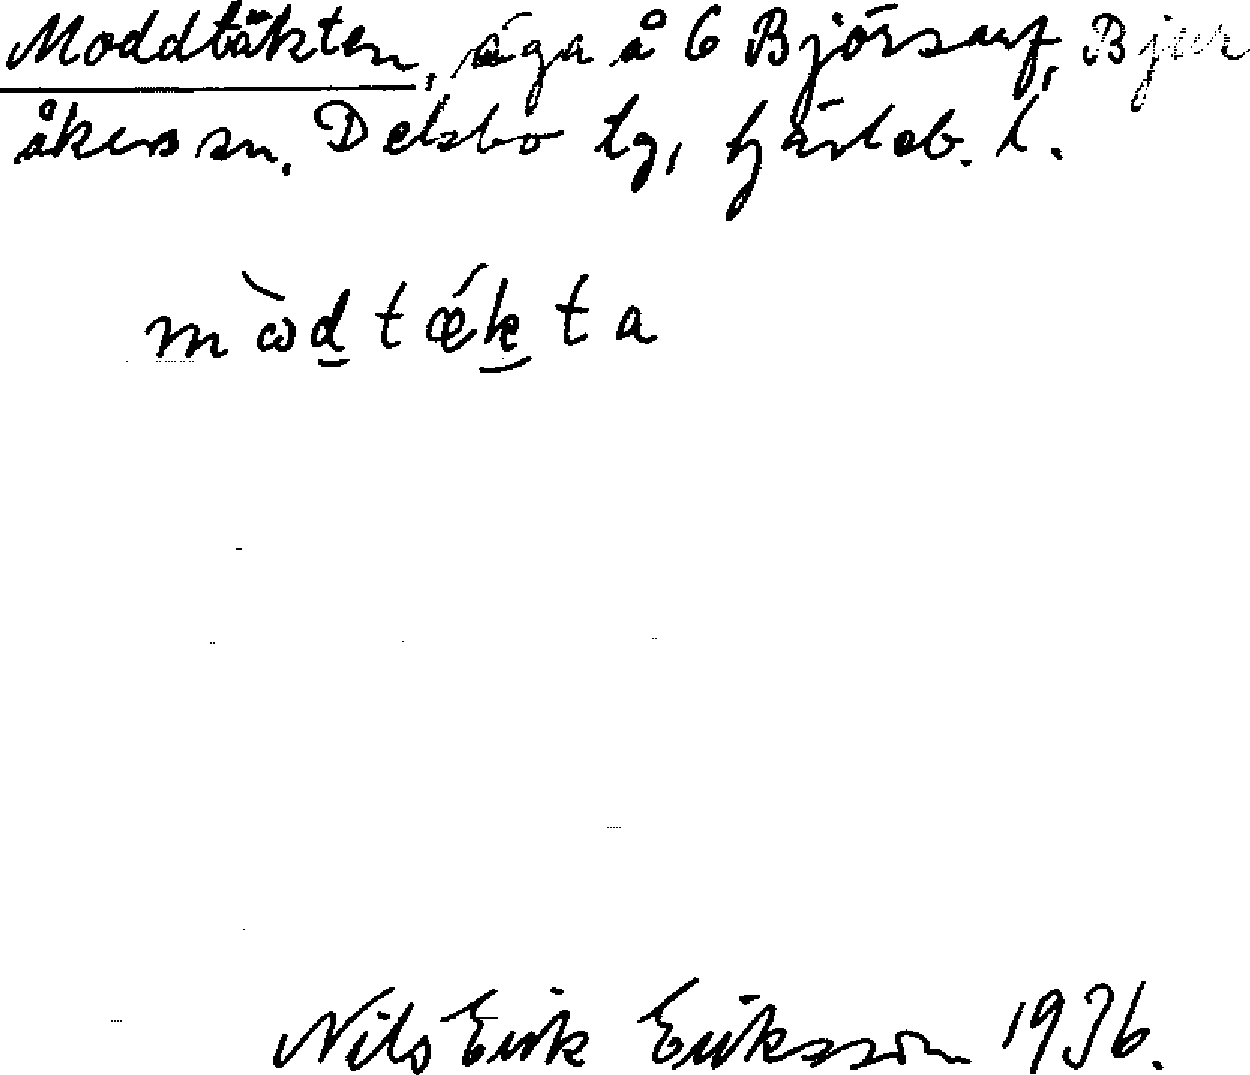 Moddtäkten, äga å 6 Björsarf, Bjur
åkers sn. Delsbo tg, Gävleb. l.
mὼd̲tǽk̲ta
Nils Erik Eriksson 1936.